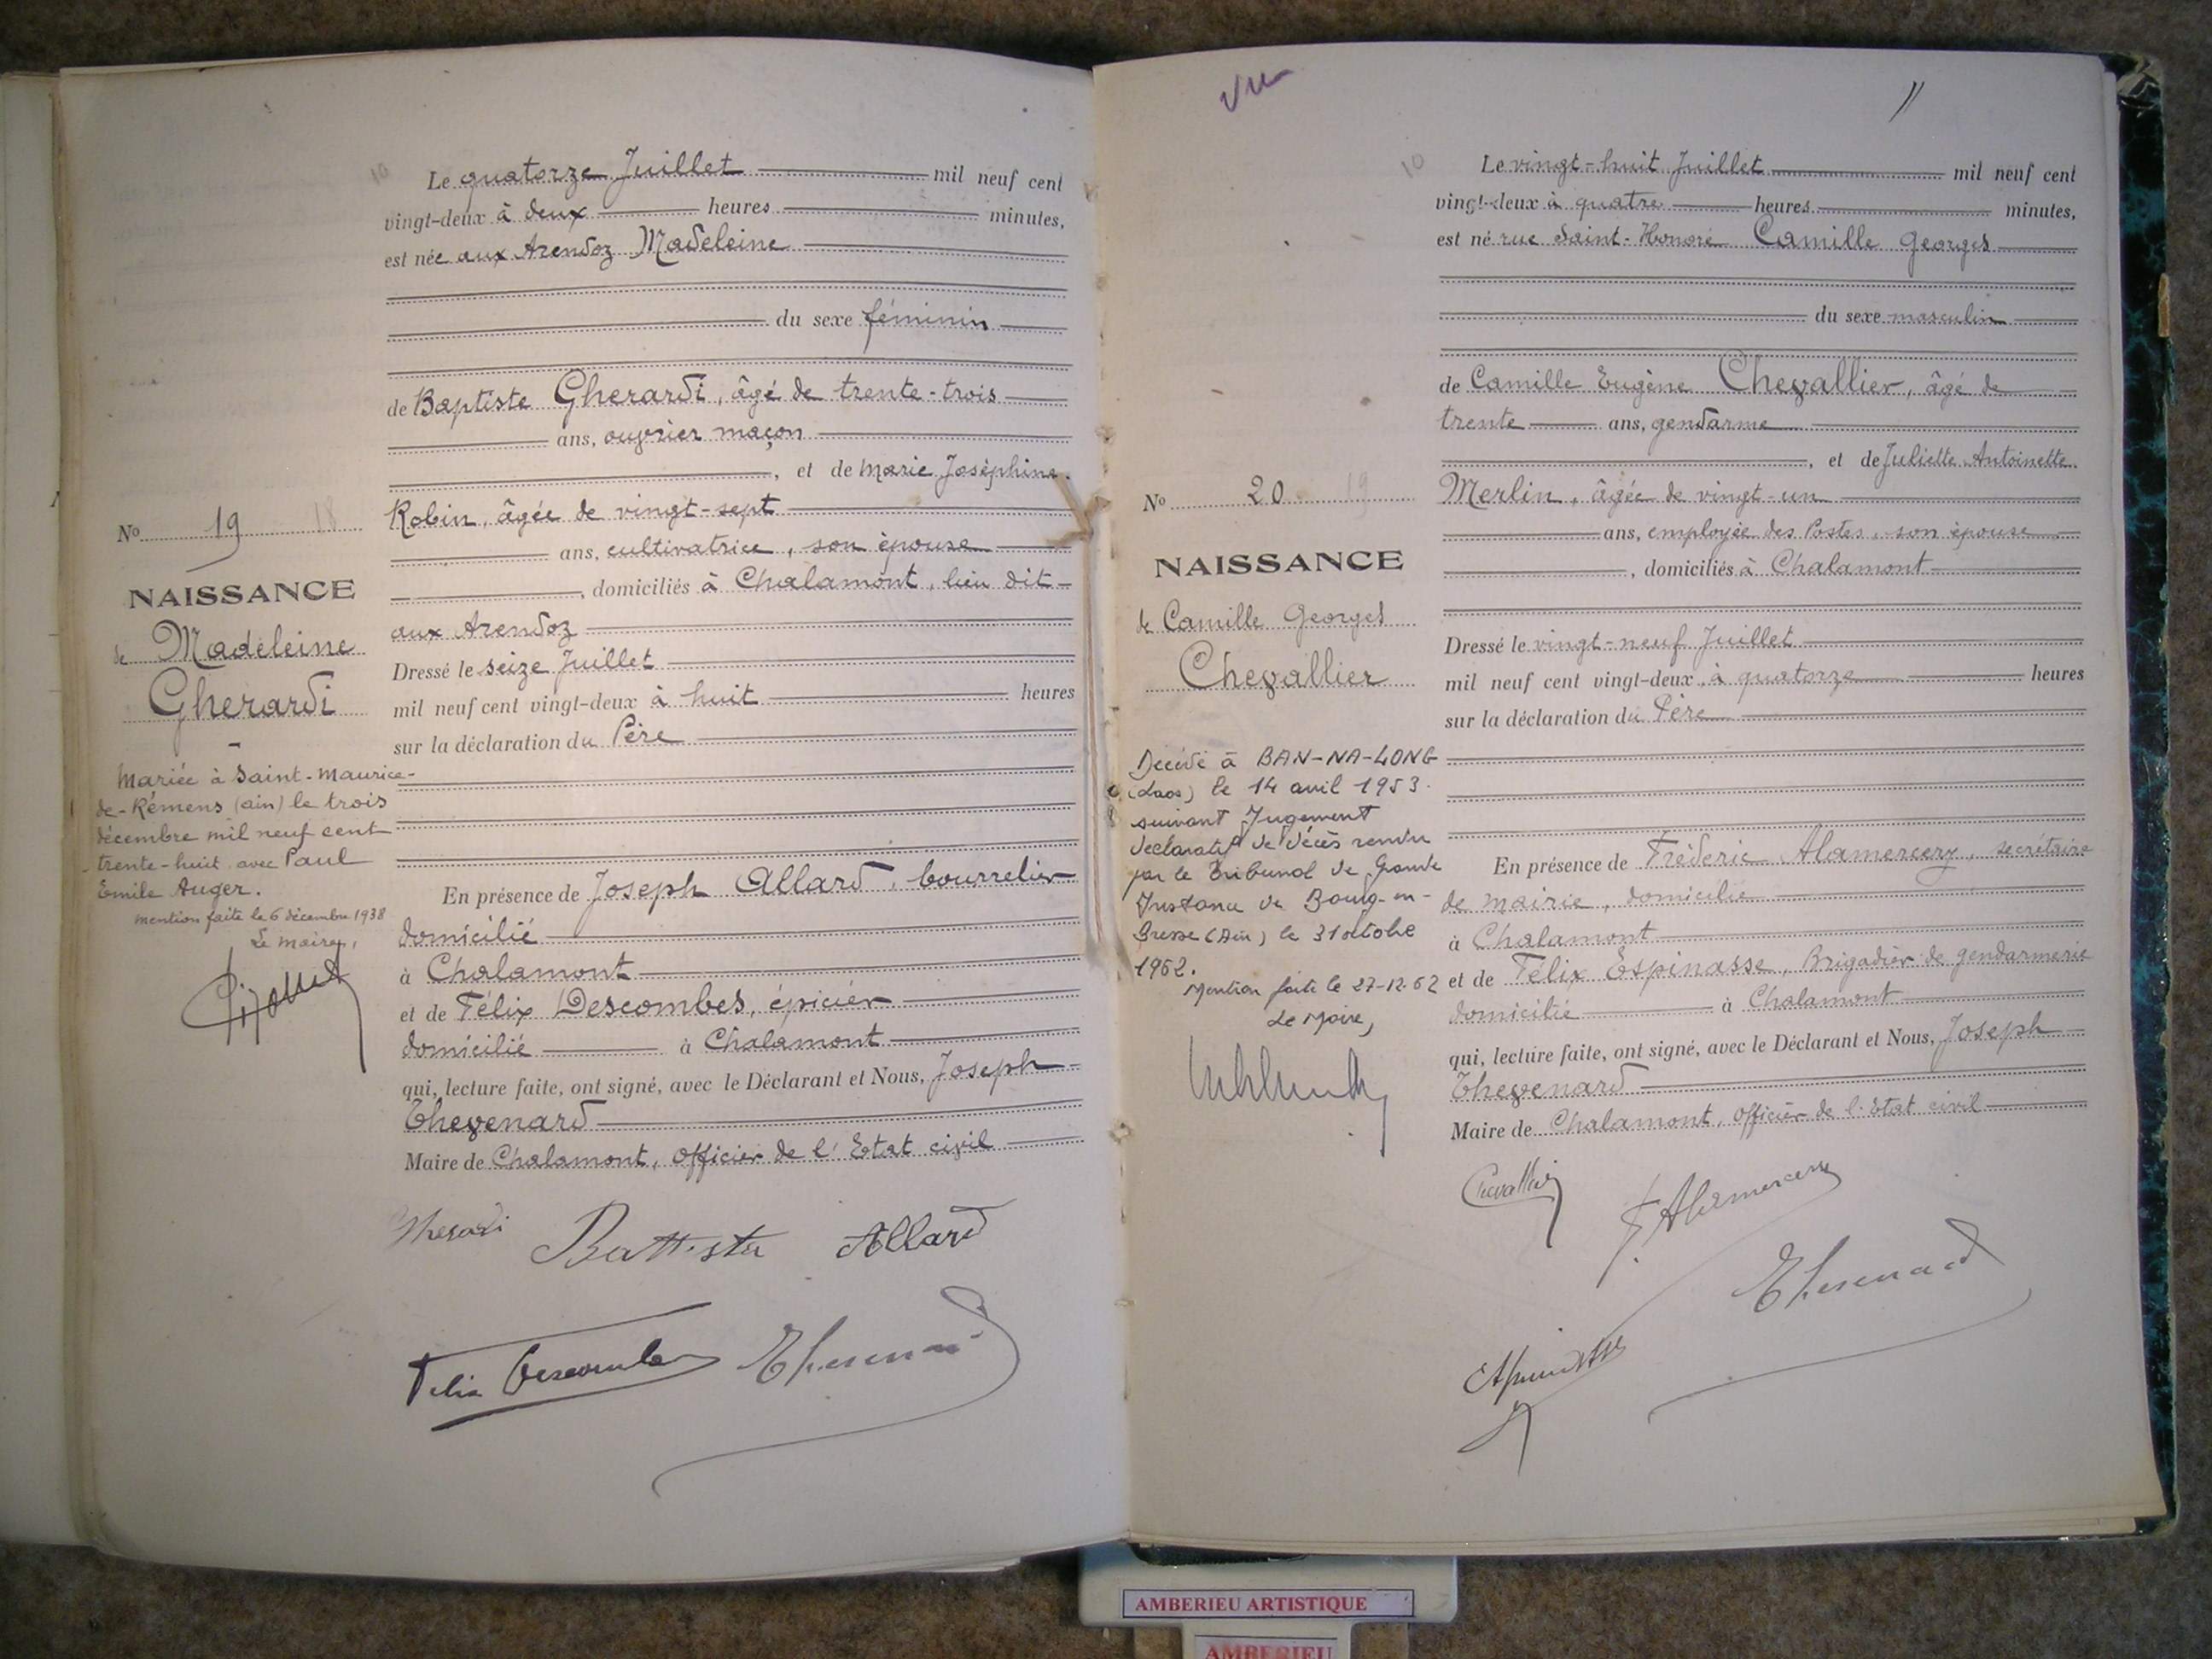 10
Le quatorze Juillet mil neuf cent
vingt-deux à deux heures minutes,
est née aux Arendoz Madeleine
du sexe féminin
de Baptiste Gherardi, âgé de trente-trois
ans, ouvrier maçon
, et de Marie Joséphine
Robin, âgée de vingt-sept
ans, cultivatrice, son épouse
, domiciliés à Chalamont, lieu dit
aux Arendoz
Dressé le seize Juillet
mil neuf cent vingt-deux à huit heures
sur la déclaration du Père
En présence de Joseph Allard, bourrelier
domicilié
à Chalamont
et de Félix Descombes, épicier
domicilié à Chalamont
qui, lecture faite, ont signé, avec le Déclarant et Nous, Joseph
Thevenard
Maire de Chalamont, Officier de l'Etat civil
Gherardi Battista Allard
Felix Descombes Thevenard
No 19 18
NAISSANCE
de Madeleine
Gherardi
Mariée à Saint-Maurice-
de-Rémens (ain) le trois
décembre mil neuf cent
trente-huit avec Paul
Emile Auger.
Mention faite le 6 décembre 1938
Le maire,
Vu
11
10
Le vingt-huit Juillet mil neuf cent
vingt-deux à quatre heures minutes,
est né rue Saint-Honoré Camille Georges
du sexe masculin
de Camille Eugène Chevallier, âgé de
trente ans, gendarme
, et de Juliette Antoinette
Merlin, âgée de vingt-un
ans, employée des Postes, son épouse
, domiciliés à Chalamont
Dressé le vingt-neuf Juillet
mil neuf cent vingt-deux, à quatorze heures
sur la déclaration du Père
En présence de Fréderic Alamercery, secrétaire
de mairie, domicilié
à Chalamont
et de Félix Espinasse, Brigadier de gendarmerie
domicilié à Chalamont
qui, lecture faite, ont signé, avec le Déclarant et Nous, Joseph
Thevenard
Maire de Chalamont, Officier de l'Etat civil
Chevallier F. Alamercery
Thevenard
Espinasse
No 20 19
NAISSANCE
de Camille Georges
Chevallier
Décédé à BAN-NA-LONG
(Laos) le 14 avril 1953.
suivant Jugement
déclaratif de décès rendu
par le Tribunal de Grande
Instance de Bourg-en-
Bresse (Ain) le 31 octobre
1962.
Mention faite le 27-12-62
Le Maire,
AMBERIEU ARTISTIQUE
AMBERIEU